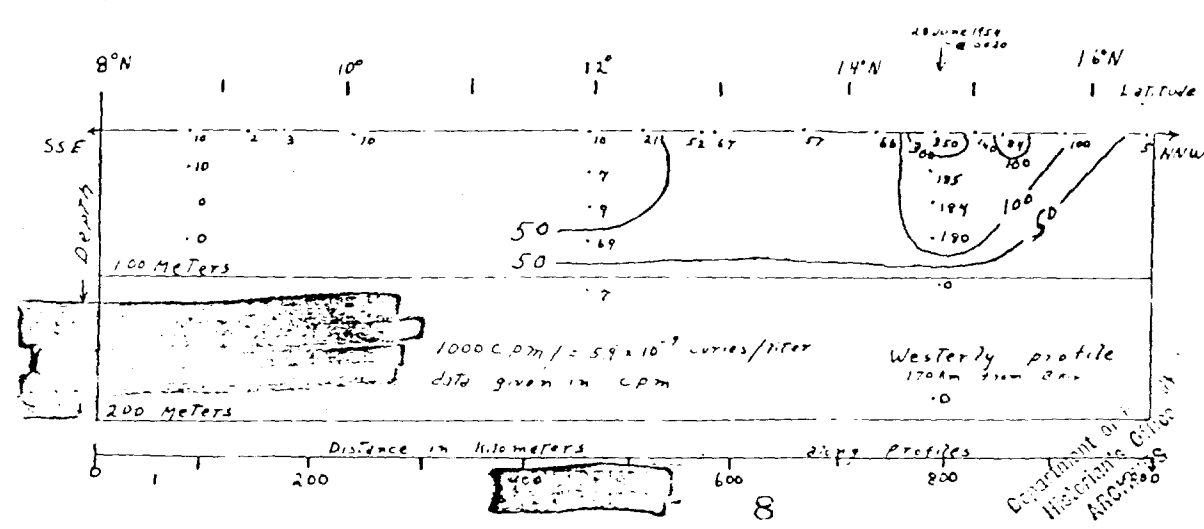 28 June 1954
@ 0020
8°N 10° 12° 14°N 16°N
Latitude
SSE NNW
10 2 3 10 10 21 52 67 57 66 300 350 140 89 100 5
10 7 185 100
0 9 184 100 50
0 50 69 190
50
Depth
100 Meters
7 0
1000 cpm/= 5.9 x 10⁻⁹ curies/liter
data given in cpm
Westerly profile
170 km from
0
200 Meters
Distance in Kilometers along Profiles
0 200 400 600 800
8
Department of
Historian's Office
ARCHIVES